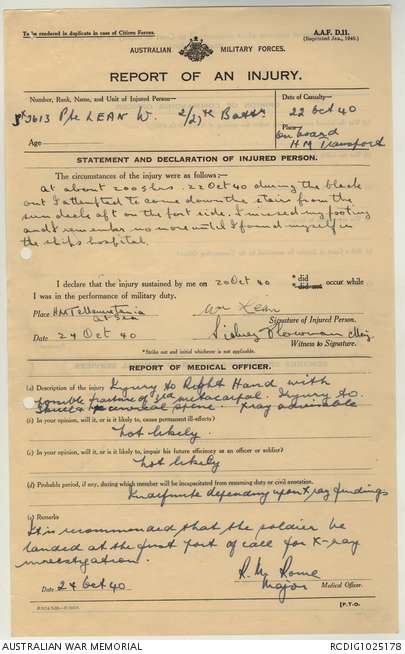 To be rendered in duplicate in case of Citizen Forces.
A.A.F. D.11.
(Reprinted Jan., 1940.)
AUSTRALIAN MILITARY FORCES.
REPORT OF AN INJURY.
Number, Rank, Name, and Unit of Injured Person—
Pte LEAN W. 2/27th Battn
Age
Date of Casualty—
22 Oct 40
Place—
On board
HM Transport
STATEMENT AND DECLARATION OF INJURED PERSON.
The circumstances of the injury were as follows:—
At about 2005 hrs. 22 Oct 40 during the black
out I attempted to come down the stairs from the
sun deck aft on the port side. I missed my footing
and I remember no more until I found myself in
the ship's hospital.
I declare that the injury sustained by me on 20 Oct 40 * did occur while
* did not
I was in the performance of military duty.
Place HMT Mauretania
at Sea
Wm Lean
Signature of Injured Person.
Date 24 Oct 40
Sidney Plowman
Witness to Signature.
*Strike out and initial whichever is not applicable.
REPORT OF MEDICAL OFFICER.
(a) Description of the injury Injury to Right Hand with
possible fracture of 3rd metacarpal. Injury to
Skull & cervical spine. Xray advisable
(b) In your opinion, will it, or is it likely to, cause permanent ill-effects?
Not likely.
(c) In your opinion, will it, or is it likely to, impair his future efficiency as an officer or soldier?
Not likely
(d) Probable period, if any, during which member will be incapacitated from resuming duty or civil avocation.
Indefinite depending upon Xray findings
(e) Remarks
It is recommended that the soldier be
landed at the first port of call for X-ray
investigation.
Date 24 Oct 40
R. M. Rome
Major
Medical Officer.
[P.T.O.
AUSTRALIAN WAR MEMORIAL
RCDIG1025178